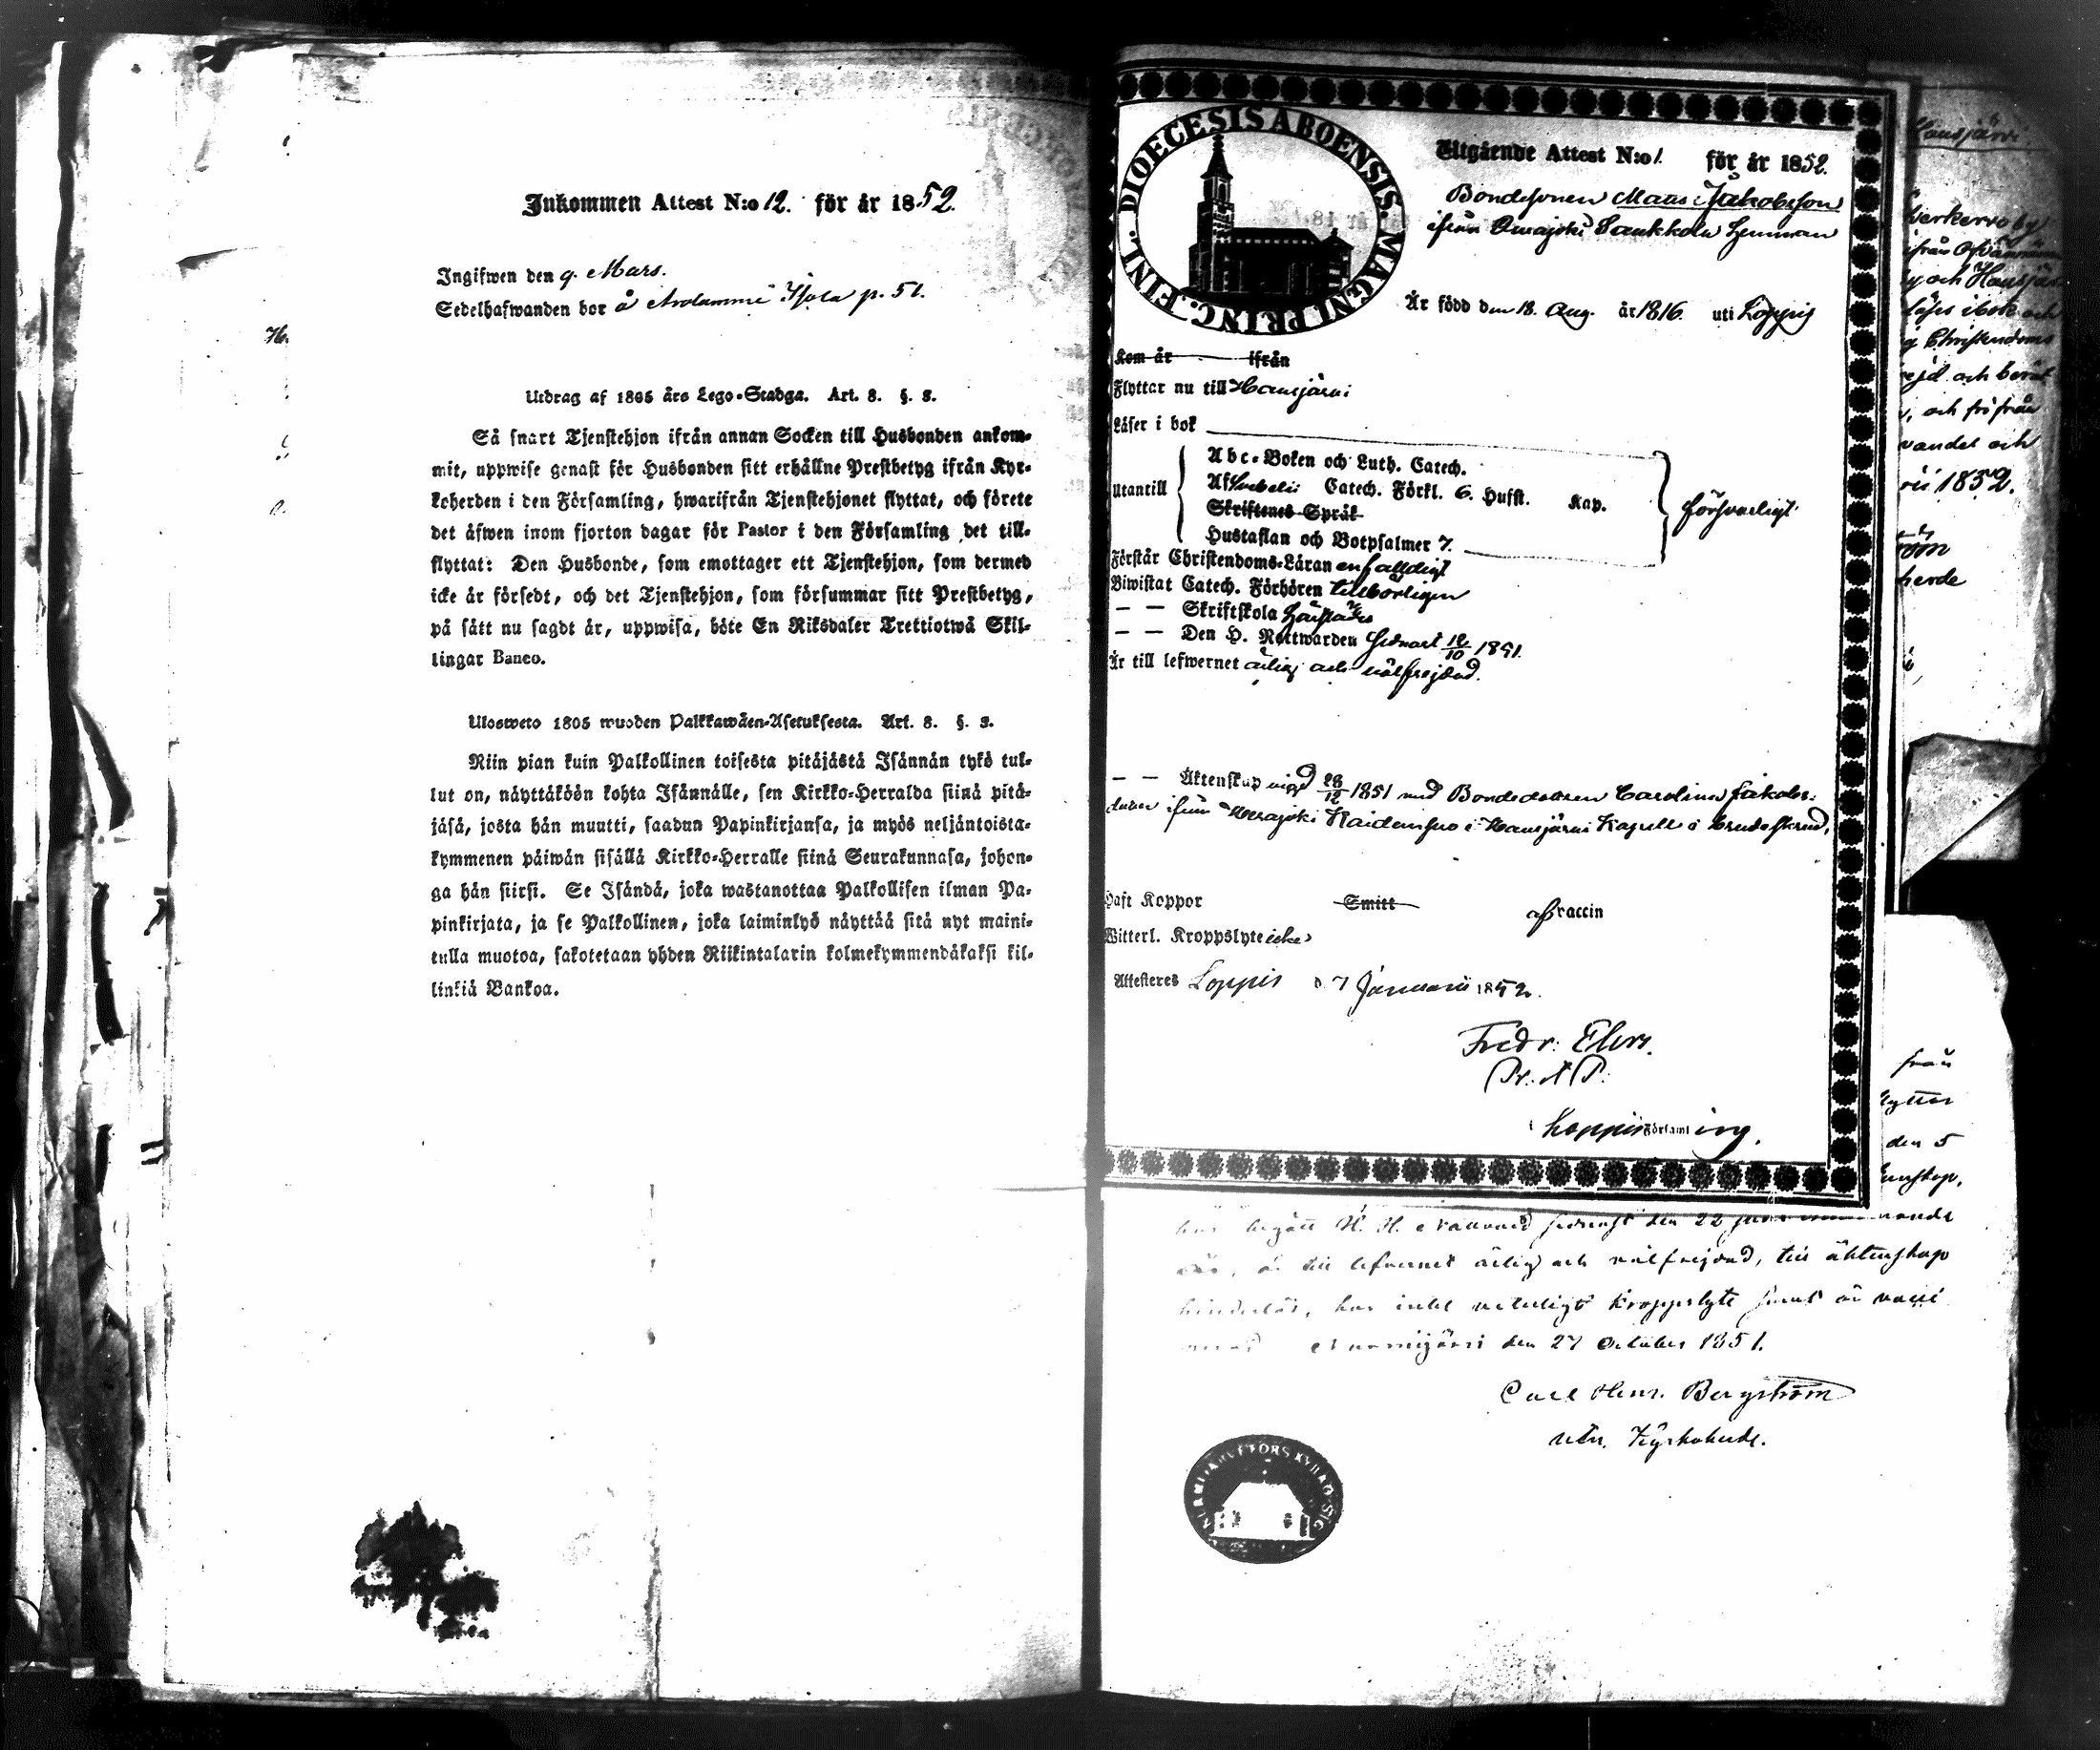 Inkommen Attest N:o 12. för år 1852.
Ingifwen den 9. Mars.
Sedelhafwanden bor å p. 51.
Utdrag af 1805 års Lego-Stadga. Art. 8. §. 3.
Så snart Tjenstehjon ifrån annan Socken till Husbonden ankom-
mit, uppwise genast för Husbonden sitt erhållne Prestbetyg ifrån Kyr-
koherden i den Församling, hwarifrån Tjenstehjonet flyttat, och förete
det äfwen inom fjorton dagar för Pastor i den Församling det till-
flyttat: Den Husbonde, som emottager ett Tjenstehjon, som dermed
icke är försedt, och det Tjenstehjon, som försummar sitt Prestbetyg,
på sätt nu sagdt är, uppwisa, böte En Riksdaler Trettiotwå Skil-
lingar Banco.
Ulosweto 1805 wuoden Palkkawäen-Asetuksesta. Art. 8. §. 3.
Niin pian kuin Palkollinen toisesta pitäjästä Isännän tykö tul-
lut on, näyttäköön kohta Isännälle, sen Kirkko-Herralda siinä pitä-
jäsä, josta hän muutti, saadun Papinkirjansa, ja myös neljäntoista-
kymmenen päiwän sisällä Kirkko-Herralle siinä Seurakunnasa, johon-
ga hän siirsi. Se Isändä, joka wastanottaa Palkollisen ilman Pa-
pinkirjata, ja se Palkollinen, joka laiminlyö näyttää sitä nyt maini-
tulla muotoa, sakotetaan yhden Riikintalarin kolmekymmendäkaksi kil-
linkiä Bankoa.
DIOECESIS ABOENSIS. MAGNI PRINC. FINL.
Utgående Attest N:o 1. för år 1852.
Bondesonen Mats Jakobsson
ifrån Sankkola
Är född den 18. Aug. år 1816. uti Loppis
Kom år ifrån
Flyttar nu till Hausjärvi
Läser i bok
Utantill
Abc-Boken och Luth. Catech.
Af Svebelii Catech. Förkl. 6. Hufst. Kap.
Skriftenes Språk
Hustaflan och Botpsalmer 7.
försvarligt
Förstår Christendoms-Läran enfalldigt
Biwistat Catech. Förhören tillbörligen
— — Skriftskola
— — Den H. Nattwarden sednast 12/10 1851.
Är till lefwernet ärlig och välfrejdad.
— — Äktenskap ingd 28/12 1851 med Bondedottren Carolina Jakobs-
dotter ifrån i Hausjärvi Kapell
Haft Koppor Smitt Vaccin
Witterl. Kroppslyte icke
Attesteras Loppis d. 7 Januarii 1852.
Fredr: Elers.
Pr. A P.
i Loppis Församling.
den 22
är till lefvernet ärlig och välfrejdad, till äktenskap
hinderlös, har intet veterligt kroppslyte samt är vacci
nerad Nurmijärvi den 27 October 1851.
Carl Henr. Bergström
Kyrkoherde.
Hausjärvi
och Hausjär
Christendoms
och
1852.
herde
från
flyttar
den 5